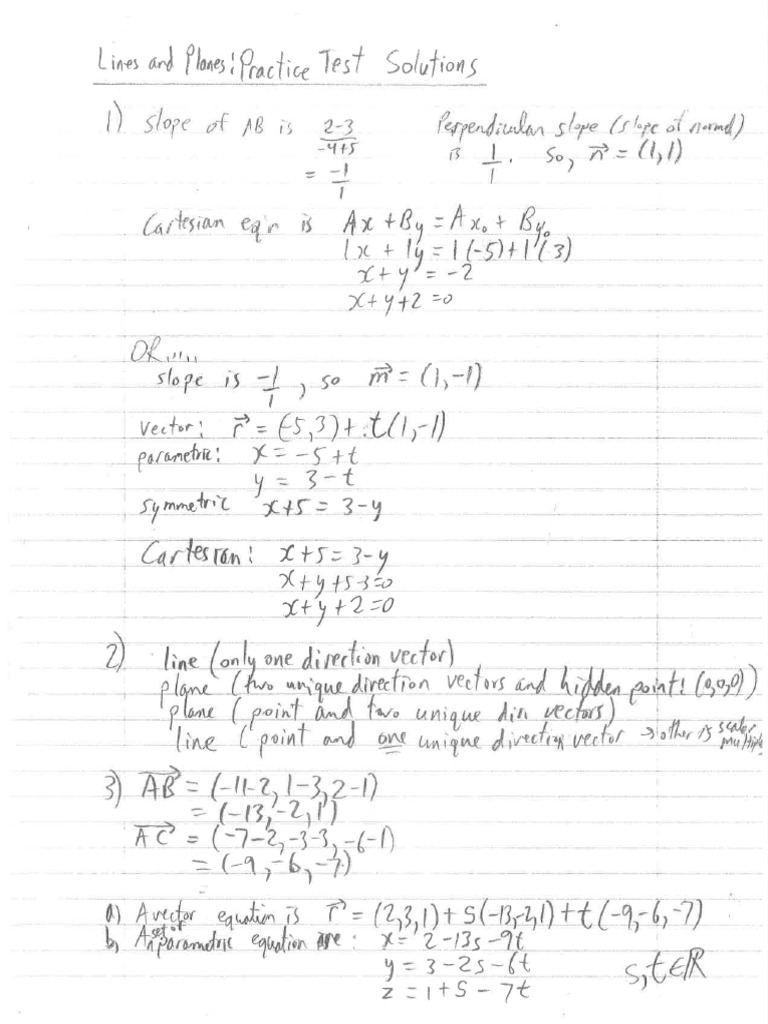 Lines and Planes: Practice Test Solutions
1) slope of AB is 2-3/-4+5 Perpendicular slope (slope of normal)
= -1/1 is 1/1. So, n⃗ = (1,1)
Cartesian eq'n is Ax + By = Ax₀ + By₀
1x + 1y = 1(-5)+1(3)
x+y = -2
x+y+2=0
OR.....
slope is -1/1, so m⃗ = (1,-1)
vector: r⃗ = (-5,3)+t(1,-1)
parametric: x = -5+t
y = 3-t
symmetric x+5 = 3-y
Cartesian: x+5=3-y
x+y+5-3=0
x+y+2=0
2) line (only one direction vector)
plane (two unique direction vectors and hidden point! (0,0,0))
plane (point and two unique dir'n vectors)
line (point and one unique direction vector → other is scalar multiple
3) AB⃗ = (-11-2, 1-3, 2-1)
= (-13, -2, 1)
AC⃗ = (-7-2, -3-3, -6-1)
= (-9, -6, -7)
a) A vector equation is r⃗ = (2,3,1)+s(-13,-2,1)+t(-9,-6,-7)
b) A set of parametric equation are: x = 2-13s-9t
y = 3-2s-6t s,t∈ℝ
z = 1+s-7t